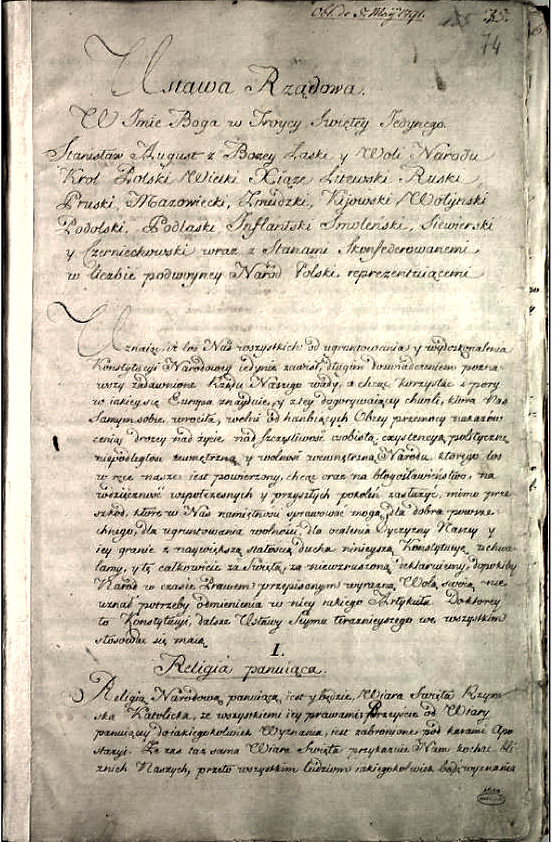 Obl. de 5. Maij 1791.
135 35.
74
Ustawa Rządowa.
W Imie Boga w Troycy Swiętey Jedynego.
Stanisław August z Bozey Łaski y Woli Narodu
Krol Polski Wielki Xiąze Litewski Ruski
Pruski, Mazowiecki, Zmudzki, Kijowski Wołynski
Podolski, Podlaski Inflantski Smoleński, Siewierski
y Czerniechowski wraz z Stanami Skonfederowanemi,
w liczbie podwoyney Naród Polski reprezentuiącemi
Uznaiąc, iż los Nas wszystkich od ugruntowania y wydoskonalenia
Konstytucyi Narodowey iedynie zawisł, długim doswiadczeniem pozna-
wszy zadawnione Rządu Naszego wady, a chcąc korzystać z pory
w iakiey się Europa znayduie, y z tey dogorywaiącey chwili, ktora Nas
Samym sobie wrociła, wolni od hanbiących Obcey przemocy nakazów
ceniąc drozey nad życie, nad szczęsliwosc osobistą exystencyą polityczną
niepodległosc zewnętrzną y wolność wewnętrzną Narodu, ktorego los
w ręce nasze iest powierzony, chcąc oraz na błogosławieństwo, na
wdzięczność wspołczesnych y przyszłych pokoleń zasłuzyć, mimo prze-
szkód, które w Nas namiętnosci sprawować mogą, dla dobra powsze-
chnego, dla ugruntowania wolności, dla ocalenia Oyczyzny Naszey y
iey granic z naywiększą stałością ducha ninieyszą Konstytucyę uchwa-
lamy, y tę całkowicie za Swiętą, za niewzruszoną deklaruiemy, dopokiby
Naród w czasie Prawem przepisanym wyraźną Wolą swoią nie
uznał potrzeby odmienienia w niey iakiego Artykułu. Do ktorey
to Konstytucyi, dalsze Ustawy Seymu teraznieyszego we wszystkim
stosować się maią.
I.
Religia panuiąca.
Religią Narodową panuiącą iest y będzie Wiara Swięta Rzym-
ska Katolicka, ze wszystkiemi iey prawami. Przeyście od Wiary
panuiącey do iakiegokolwiek Wyznania, iest zabronione pod karami Apo-
stazyi. Ze zas taz sama Wiara Swięta przykazuie Nam kochać bli-
znich Naszych, przeto wszystkim ludziom iakiegokolwiek bądź wyznania